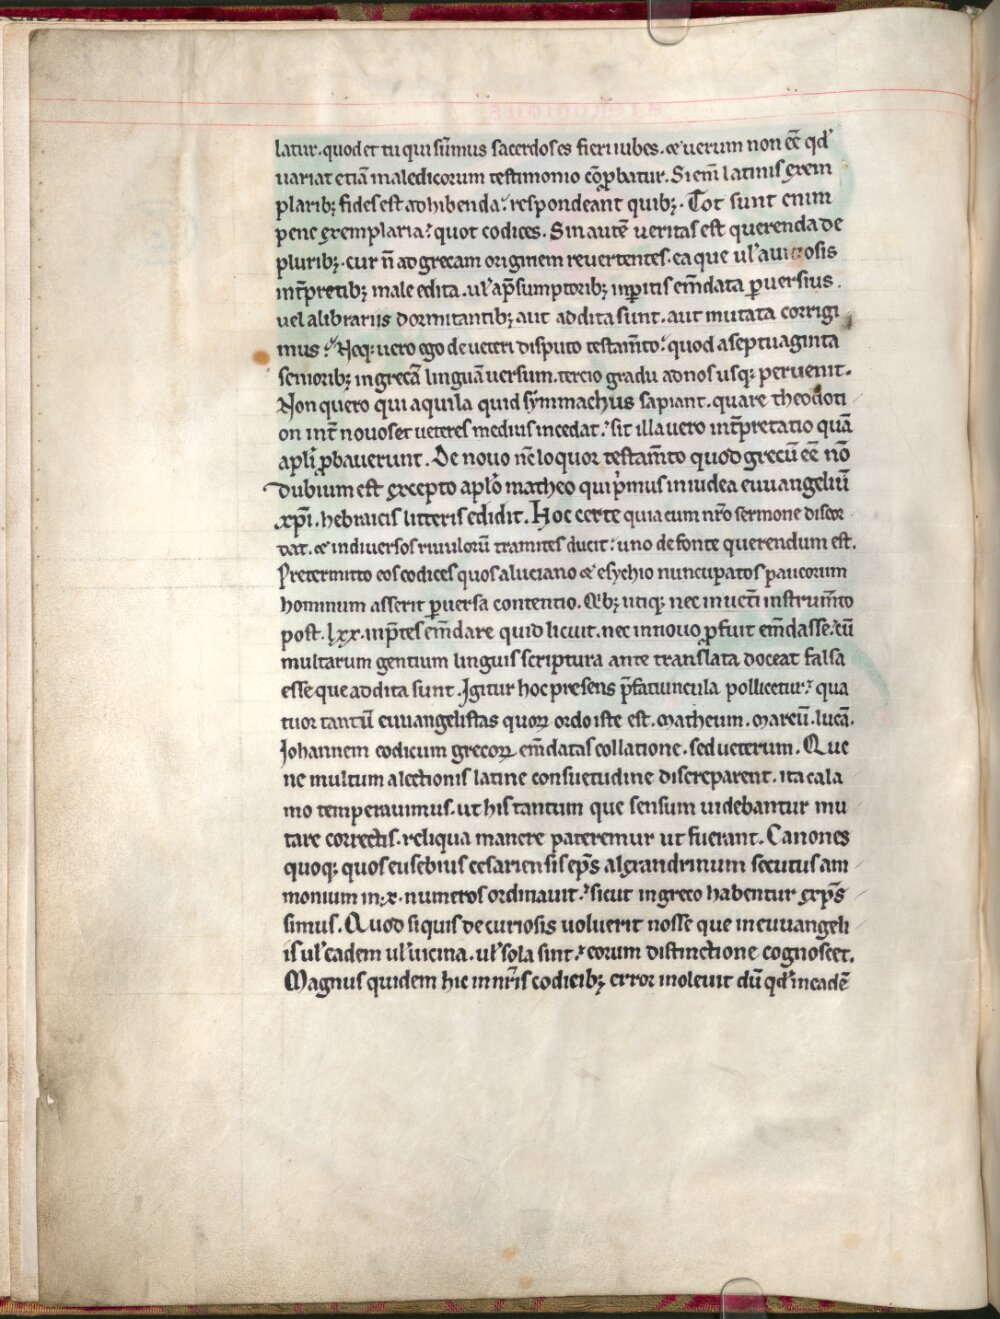 latur. quod et tu qui sūmus sacerdos es fieri iubes. & uerum non eē qd̕
uariat etiā maledicorum testimonio cōꝓbatur. Si eni̅ latinis exem
plarib; fides est adhibenda.' respondeant quib;. Tot sunt enim
pene exemplaria.' quot codices. Sin autē ueritas est querenda de
plurib;. cur n̄ ad grecam originem reuertentes. ea que ul̕ a uitiosis
int̄pretib; male edita. ul̕ a p̄sumptorib; inperitis em̄data ꝑuersius.
uel a librariis dormitantib; aut addita sunt. aut mutata corrigi
mus.' Neq; uero ego de ueteri disputo testam̄to.' quod a septuaginta
seniorib; in grecā linguā uersum. tercio gradu ad nos usq; peruenit.
Non quero qui aquila quid sym̄machus sapiant. quare theodoti
on int̄ nouos et ueteres medius incedat.' sit illa uero int̄pretatio quā
apl̄i ꝓbauerunt. De nouo n̄c loquor testam̄to quod grecū eē nō
dubium est excepto apl̄o matheo qui p̄mus in iudea euuangeliū
xp̄i. hebraicis litteris edidit. Hoc certe quia cum nr̄o sermone discor
dat. & in diuersos riuulorū tramites ducit.' uno de fonte querendum est.
Pretermitto eos codices quos a luciano & esychio nuncupatos paucorum
hominum asserit ꝑuersa contentio. Qib; utiq; nec in uet̄i instrum̄to
post. lxx. inp̄tes em̄dare quid licuit. nec in nouo ꝓfuit em̄dasse.' cū
multarum gentium linguis scriptura ante translata doceat falsa
esse que addita sunt. Igitur hoc presens p̄fatiuncula pollicetur.' qua
tuor tantū euuangelistas quoꝝ ordo iste est. Matheum. Marcū. lucā.
Iohannem codicum grecoꝝ em̄datas collatione. sed ueterum. Que
ne multum a lectionis latine consuetudine discreparent. ita cala
mo temperauimus. ut his tantum que sensum uidebantur mu
tare correctis. reliqua manere pateremur ut fuerant. Canones
quoq; quos eusebius cesariensis ep̄s alexandrinum secutus am
monium in .x. numeros ordinauit.' sicut in greco habentur exp̄s
simus. Quod si quis de curiosis uoluerit nosse que in euuangeli
is ul̕ eadem ul̕ uicina. ul̕ sola sint.' eorum distinctione cognoscet.
Magnus quidem hic in nr̄is codicib; error inoleuit dū qd̕ in eadē